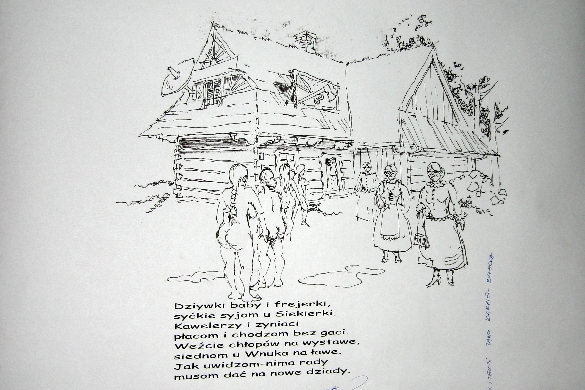 Dziywki baby i frejerki,
syćkie syjom u Siekierki.
Kawelerzy i zyniaci
płacom i chodzom bez gaci.
Weźcie chłopów na wystawe,
siednom u Wnuka na ławe.
Jak uwidzom-nima rady
musom dać na nowe dziady.